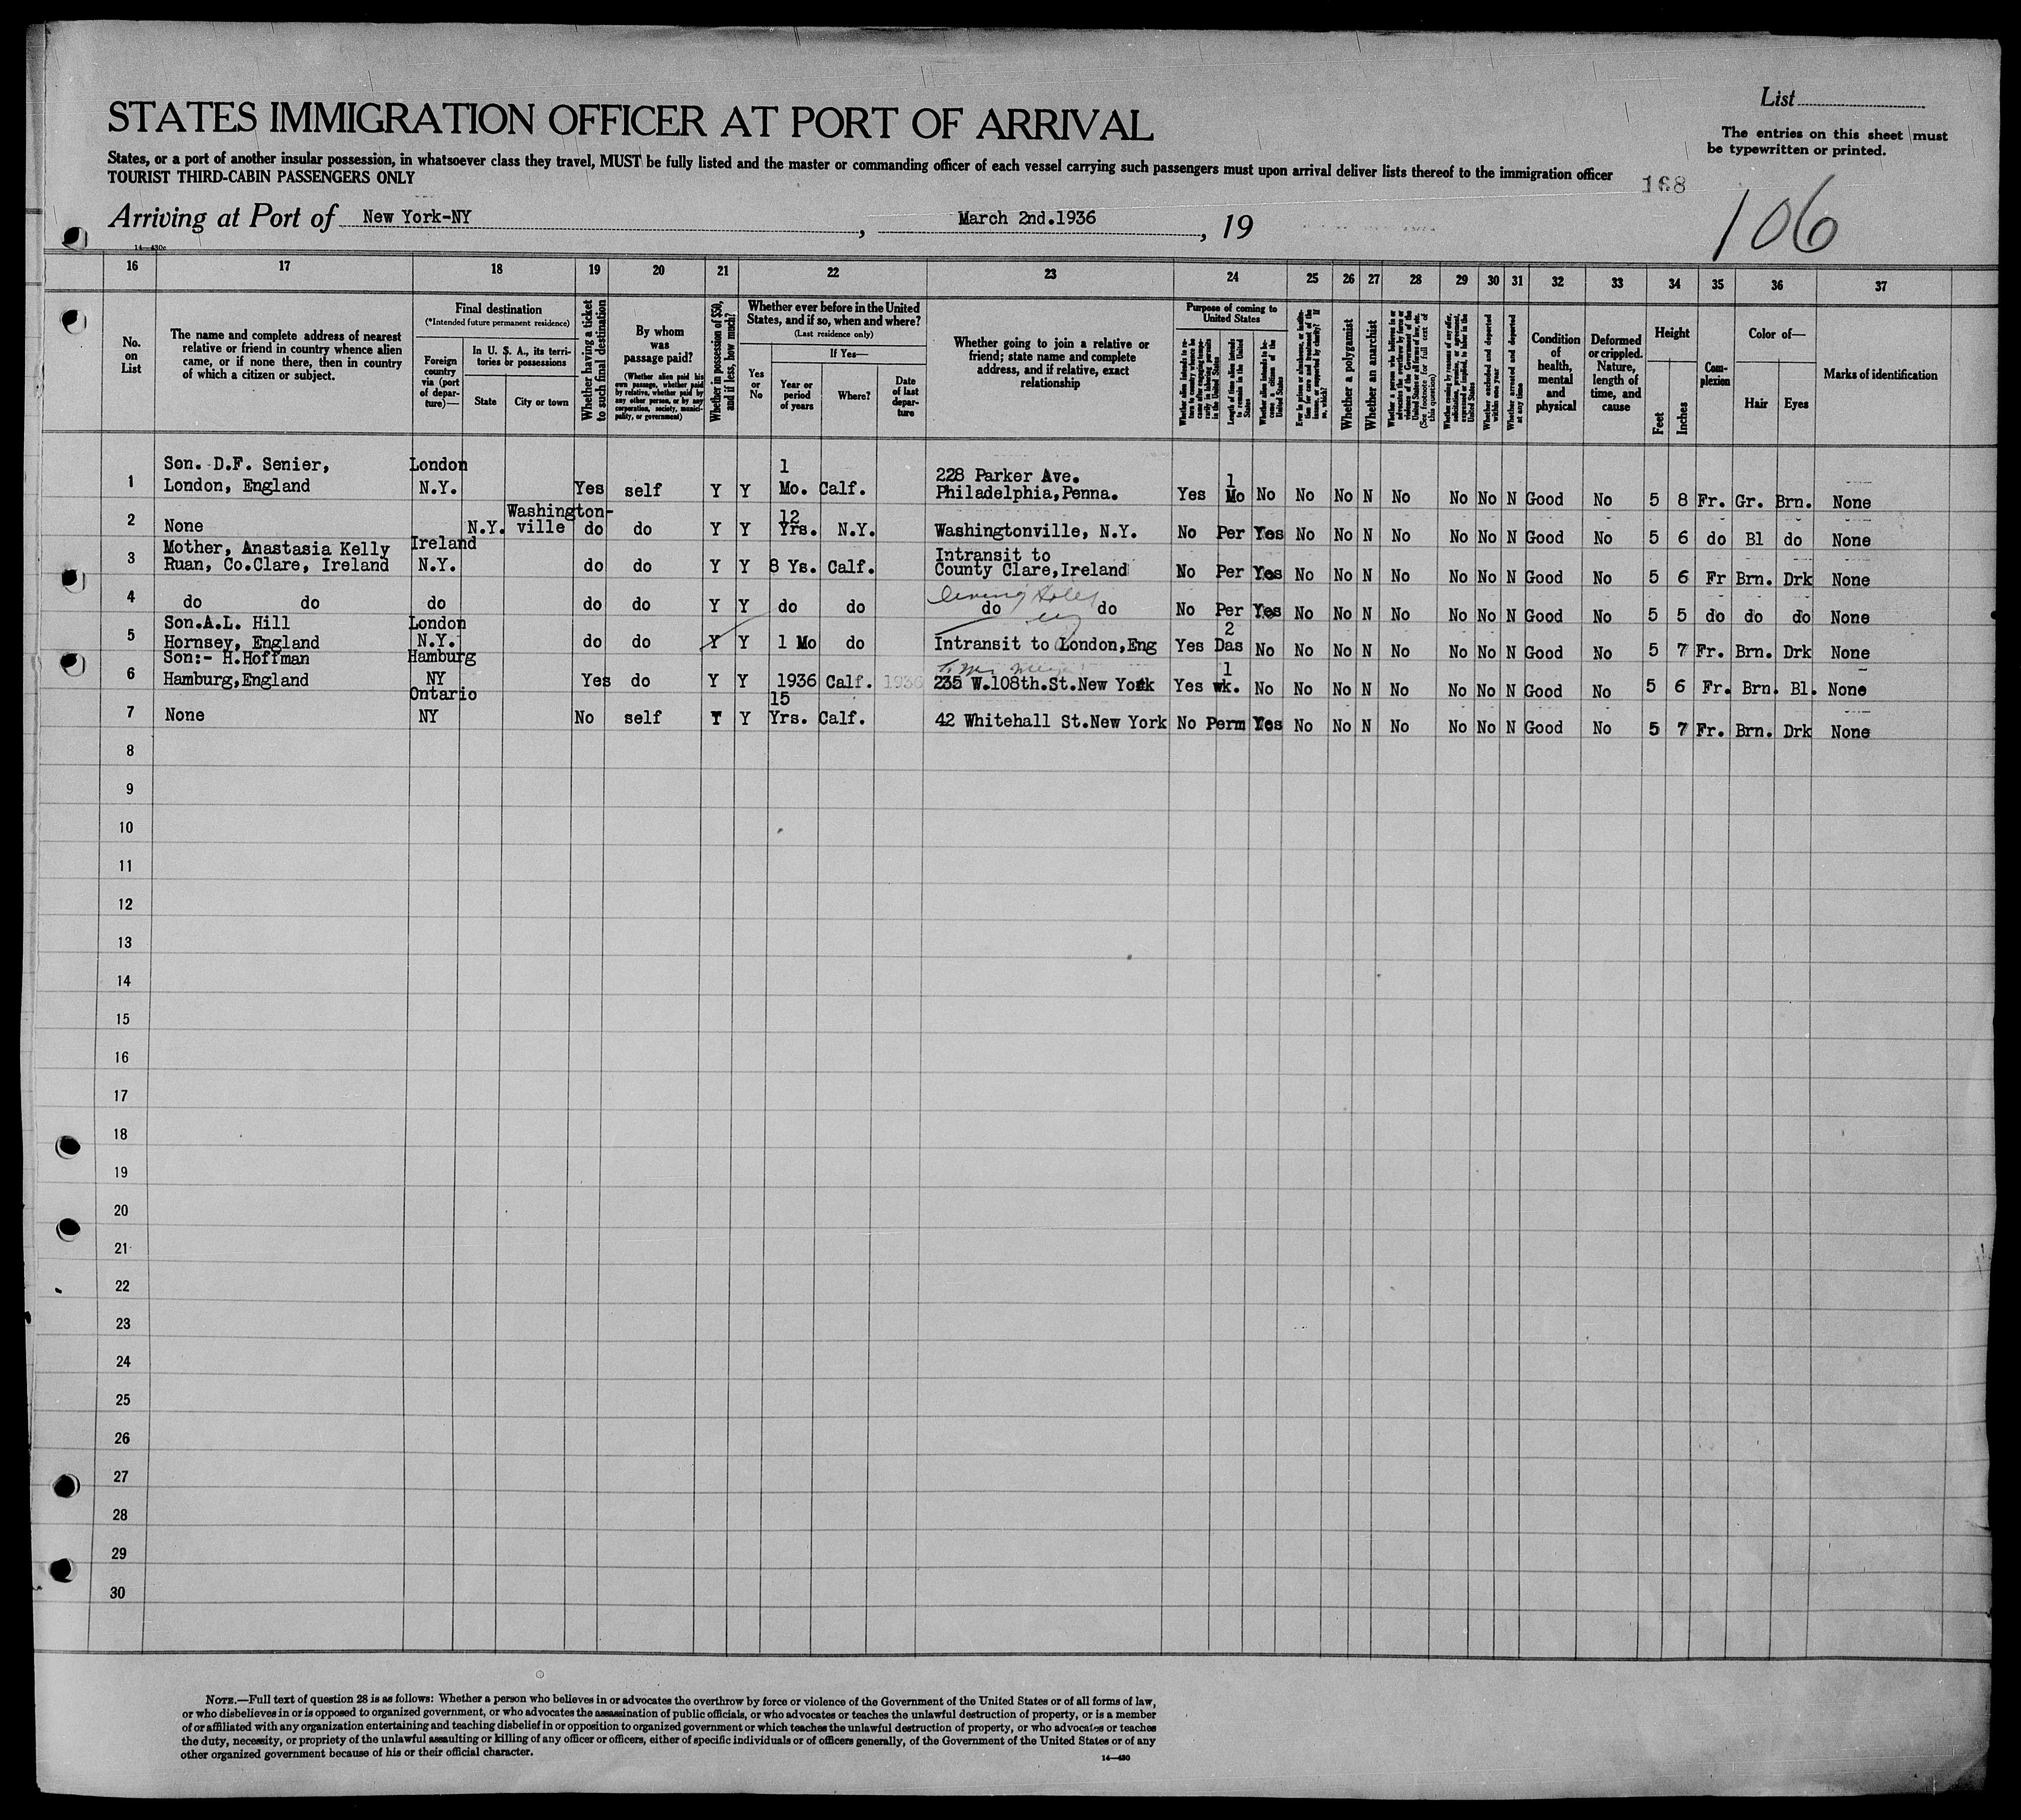 List
STATES IMMIGRATION OFFICER AT PORT OF ARRIVAL
The entries on this sheet must
be typewritten or printed.
States, or a port of another insular possession, in whatsoever class they travel, MUST be fully listed and the master or commanding officer of each vessel carrying such passengers must upon arrival deliver lists thereof to the immigration officer
TOURIST THIRD-CABIN PASSENGERS ONLY
168
106
Arriving at Port of New York-NY, March 2nd.1936, 19
14—430c
16 17 18 19 20 21 22 23 24 25 26 27 28 29 30 31 32 33 34 35 36 37
No. on List
The name and complete address of nearest relative or friend in country whence alien came, or if none there, then in country of which a citizen or subject.
Final destination
(*Intended future permanent residence)
Foreign country via (port of departure)—
In U. S. A., its territories or possessions
State
City or town
Whether having a ticket to such final destination
By whom was passage paid?
(Whether alien paid his own passage, whether paid by relative, whether paid by any other person, or by any corporation, society, municipality, or government)
Whether in possession of $50, and if less, how much?
Whether ever before in the United States, and if so, when and where?
(Last residence only)
Yes or No
If Yes—
Year or period of years
Where?
Date of last departure
Whether going to join a relative or friend; state name and complete address, and if relative, exact relationship
Purpose of coming to United States
Whether alien intends to return to country whence he came after engaging temporarily in laboring pursuits in the United States
Length of time alien intends to remain in the United States
Whether alien intends to become a citizen of the United States
Ever in prison or almshouse, or institution for care and treatment of the insane, or supported by charity? If so, which?
Whether a polygamist
Whether an anarchist
Whether a person who believes in or advocates the overthrow by force or violence of the Government of the United States or all forms of law, etc. (See footnote for full text of this question)
Whether coming by reason of any offer, solicitation, promise, or agreement, expressed or implied, to labor in the United States
Whether excluded and deported within one year
Whether arrested and deported at any time
Condition of health, mental and physical
Deformed or crippled. Nature, length of time, and cause
Height
Feet
Inches
Complexion
Color of—
Hair
Eyes
Marks of identification
1 Son. D.F. Senier, London, England London N.Y. Yes self Y Y 1 Mo. Calf. 228 Parker Ave. Philadelphia,Penna. Yes 1 Mo No No No N No No No N Good No 5 8 Fr. Gr. Brn. None
2 None N.Y. Washington-ville do do Y Y 12 Yrs. N.Y. Washingtonville, N.Y. No Per Yes No No N No No No N Good No 5 6 do Bl do None
3 Mother, Anastasia Kelly Ruan, Co.Clare, Ireland Ireland N.Y. do do Y Y 8 Ys. Calf. Intransit to County Clare,Ireland No Per Yes No No N No No No N Good No 5 6 Fr Brn. Drk None
4 do do do do do Y Y do do do do No Per Yes No No N No No No N Good No 5 5 do do do None
5 Son.A.L. Hill Hornsey, England London N.Y. do do Y Y 1 Mo do Intransit to London,Eng Yes 2 Das No No No N No No No N Good No 5 7 Fr. Brn. Drk None
6 Son:- H.Hoffman Hamburg,England Hamburg NY Yes do Y Y 1936 Calf. 1936 235 W.108th.St.New York Yes 1 wk. No No No N No No No N Good No 5 6 Fr. Brn. Bl. None
7 None Ontario NY No self Y Y 15 Yrs. Calf. 42 Whitehall St.New York No Perm Yes No No N No No No N Good No 5 7 Fr. Brn. Drk None
8
9
10
11
12
13
14
15
16
17
18
19
20
21
22
23
24
25
26
27
28
29
30
NOTE.—Full text of question 28 is as follows: Whether a person who believes in or advocates the overthrow by force or violence of the Government of the United States or of all forms of law,
or who disbelieves in or is opposed to organized government, or who advocates the assassination of public officials, or who advocates or teaches the unlawful destruction of property, or is a member
of or affiliated with any organization entertaining and teaching disbelief in or opposition to organized government or which teaches the unlawful destruction of property, or who advocates or teaches
the duty, necessity, or propriety of the unlawful assaulting or killing of any officer or officers, either of specific individuals or of officers generally, of the Government of the United States or of any
other organized government because of his or their official character.
14—430